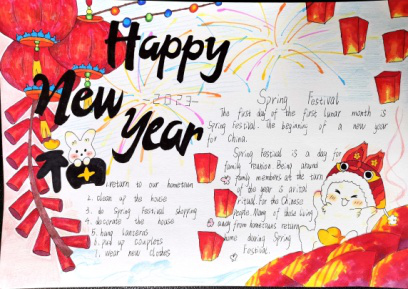 Happy
New
Year
-2023-
福
1. return to our hometown
2. clean up the house
3. do Spring Festival shopping
4. decorate the house
5. hang lanterns
6. put up couplets
7. wear new clothes
Spring Festival
The first day of the first lunar month is
Spring Festival. The beginning of a new year
for China.
Spring Festival is a day for
family reunion. Being around
family members at the turn
of the year is a
ritual for the Chinese
people. Many of those living
away from hometowns return
home during Spring
Festival.